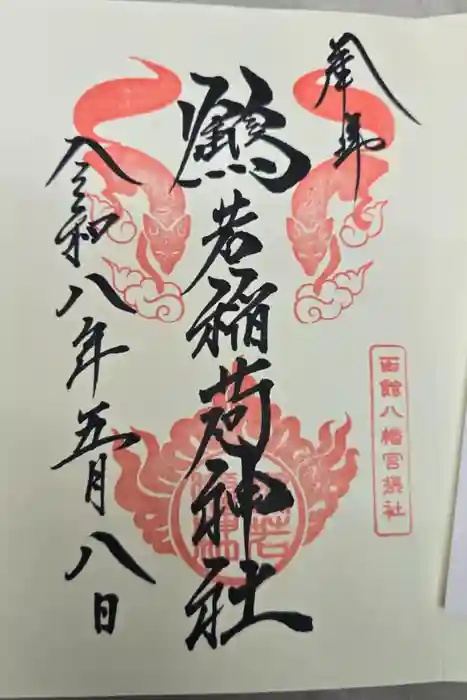 奉拝
函館八幡宮摂社
鶴若稲荷神社
令和八年五月八日